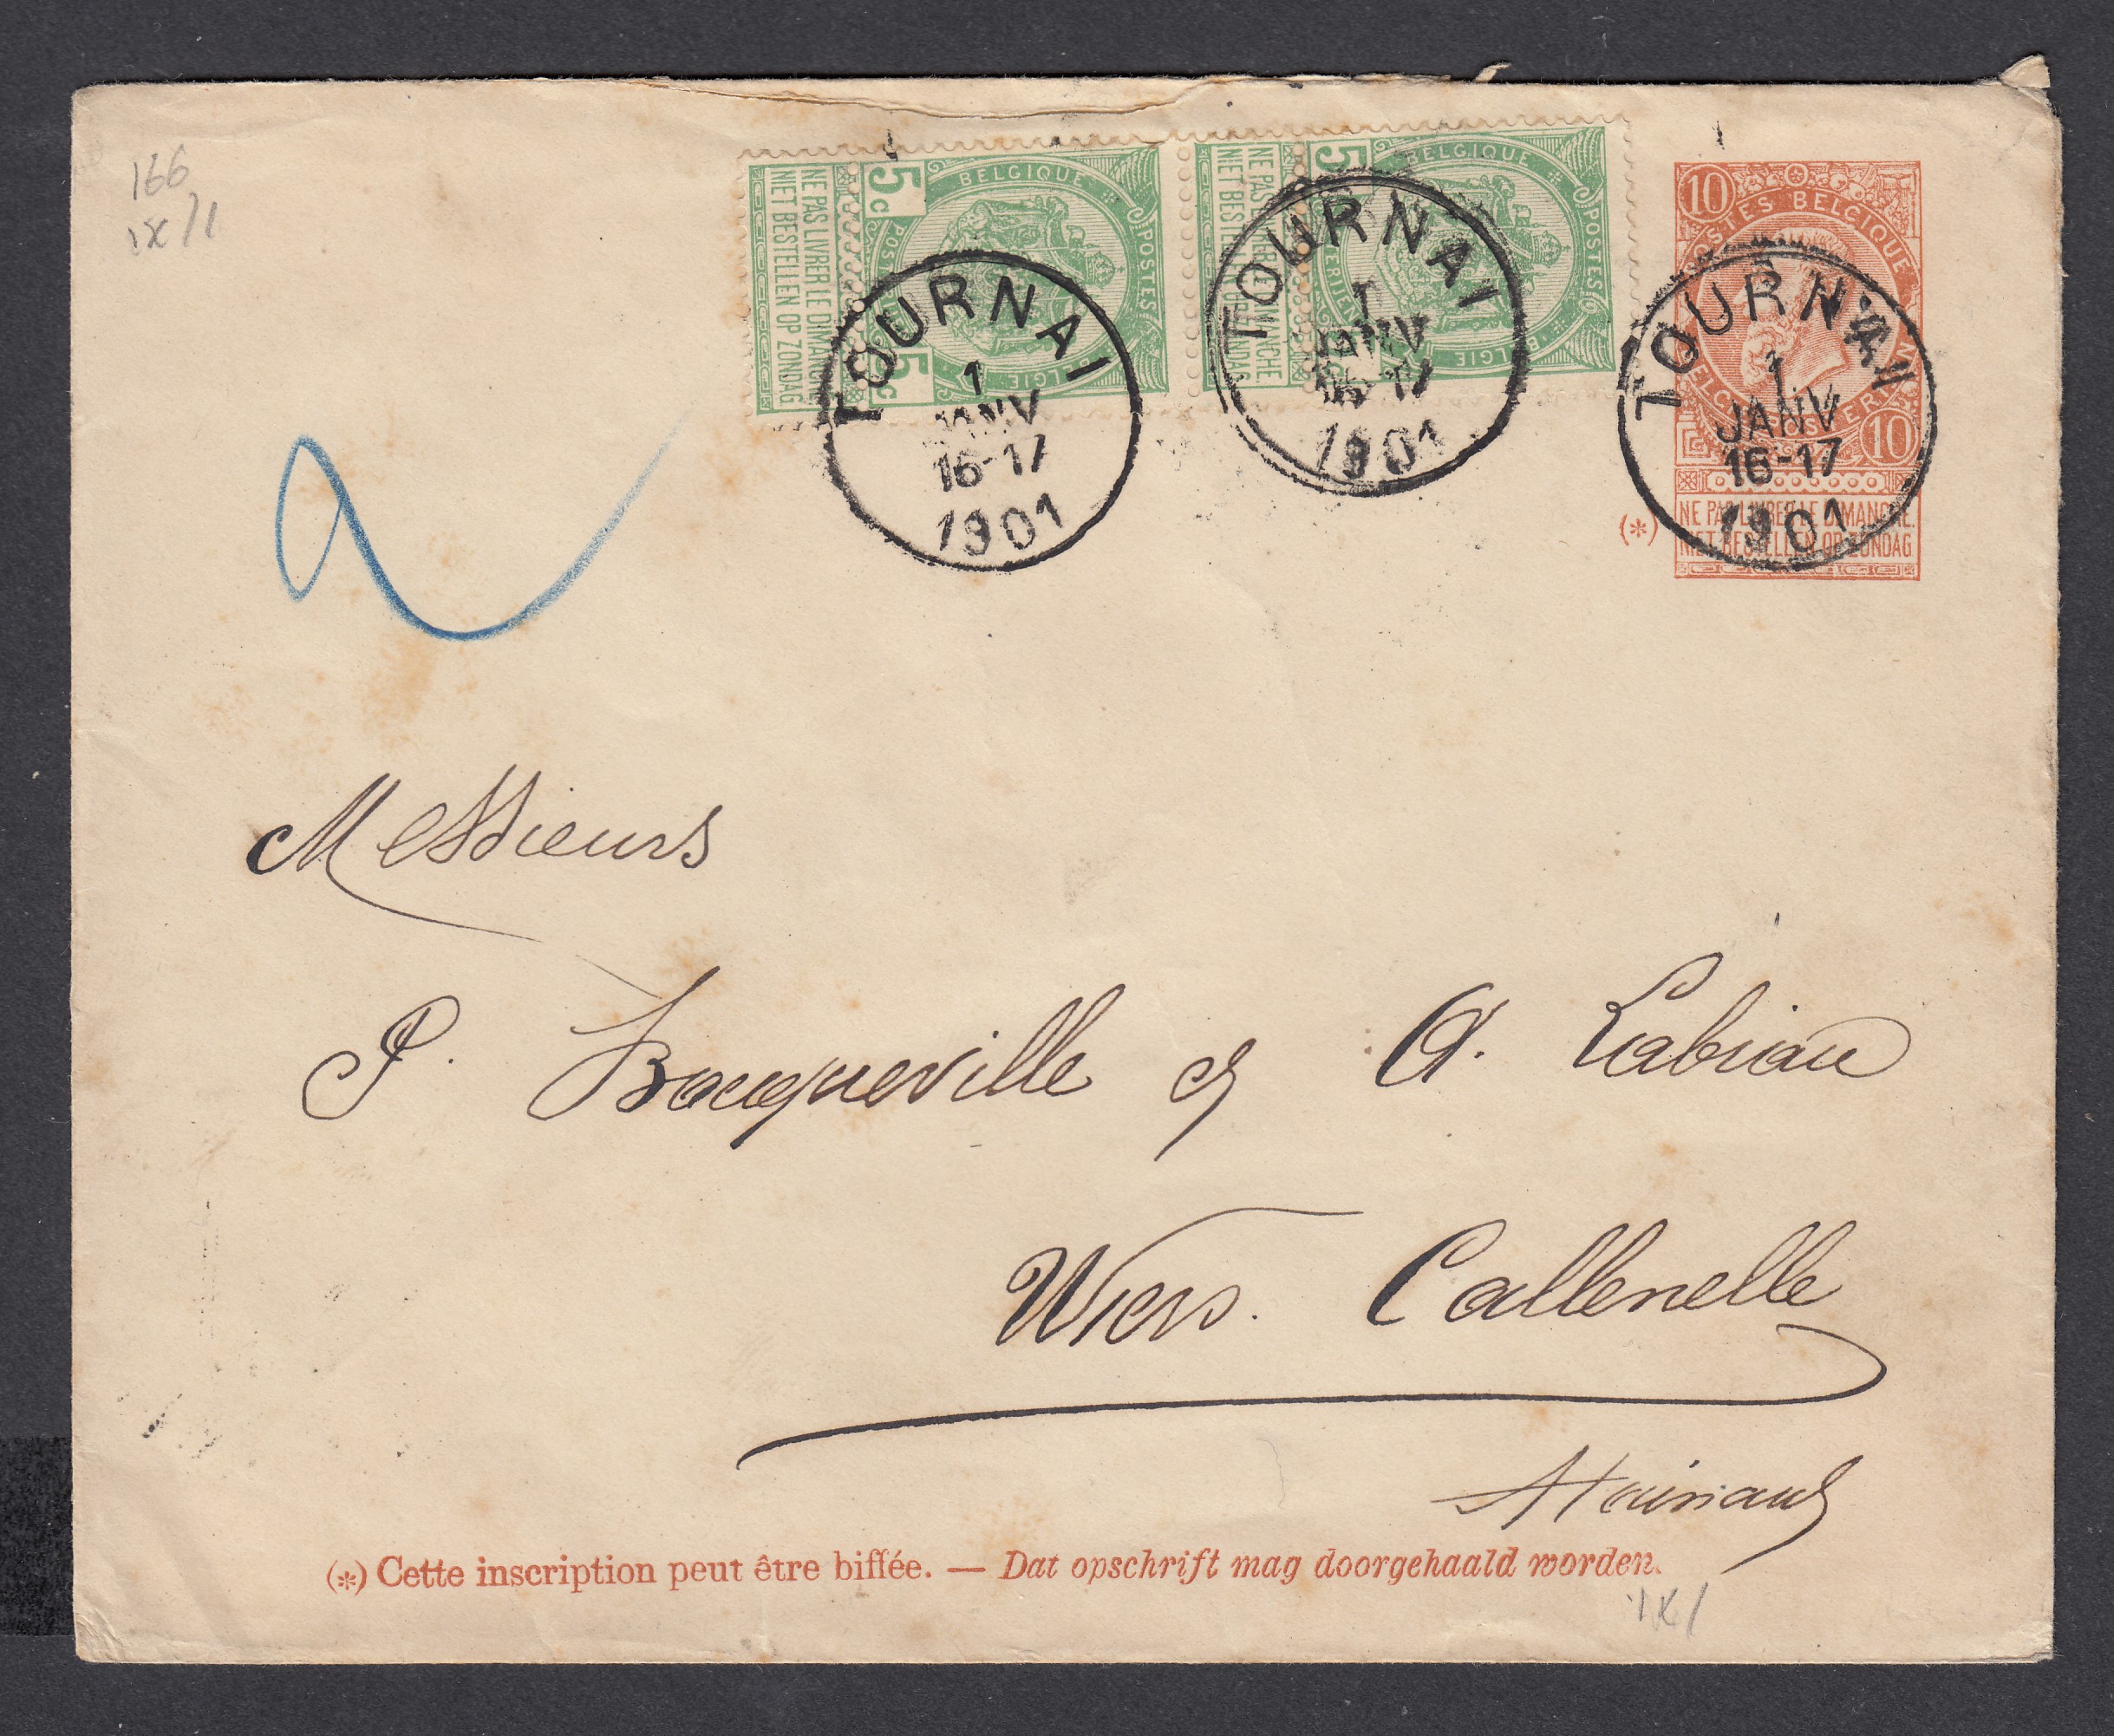 166
ix/1
5c
BELGIQUE
POSTES
BELGIE
5c
NE PAS LIVRER LE DIMANCHE
NIET BESTELLEN OP ZONDAG
5
BELGIQUE
POSTES
BELGIE
POSTERIJEN
TOURNAI
1
JANV
16-17
1901
TOURNAI
1
JANV
16-17
1901
10
POSTES BELGIQUE
10
(*)
NE PAS LIVRER LE DIMANCHE.
NIET BESTELLEN OP ZONDAG
TOURNAI
1
JANV
16-17
1901
Messieurs
P. Bouqueville & A. Labiau
Wiers. Callenelle
Hainaut
(*) Cette inscription peut être biffée. — Dat opschrift mag doorgehaald worden.